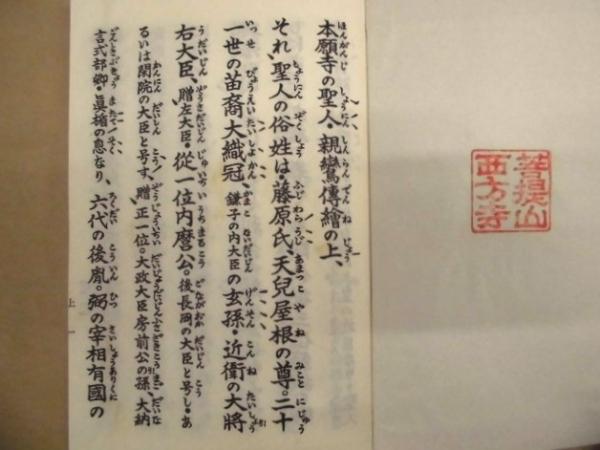 本願寺の聖人・親鸞傳繪の上、
それ、聖人の俗姓は・藤原氏、天兒屋根の尊。二十
一世の苗裔大織冠、鎌子の内大臣の玄孫・近衛の大將
右大臣、贈左大臣・從一位内麿公。後長岡の大臣と号し・あ
るいは閑院の大臣と号す、贈、正一位。大政大臣房前公の孫、大納
言式部卿・眞楯の息なり、六代の後胤。弼の宰相有國の
上 一
菩提山
西方寺